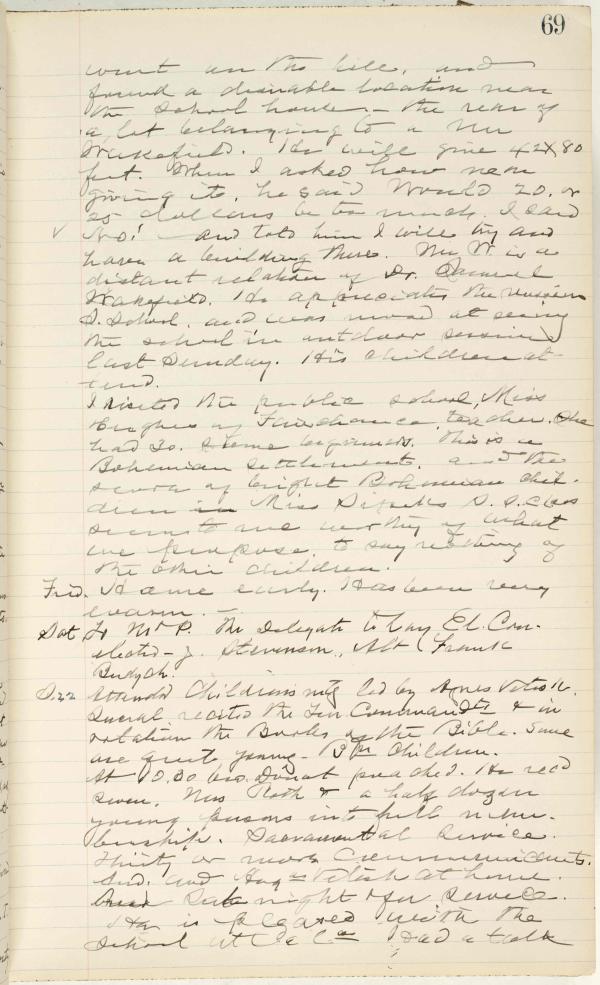 69
went on the hill, and
found a desirable location near
the school house - the rear of
a lot belonging to a Mr
Wakefield. He will give 42 x 80
feet. When I asked how near
giving it, he said Would 20. or
25 dollars be too much. I said
No! - and told him I will try and
have a building there. Mr W. is a
distant relation of Dr. Samuel
Wakefield. He appreciates the mission
S. School, and was moved at seeing
the school in outdoor session
last Sunday. His children at-
tend.
I visited the public school, Miss
Hughes of Fairchance, teacher. She
had 30. Some beginners. This is a
Bohemian settlement, and the
score of bright Bohemian chil-
dren in Miss S. S. class
seems to me worthy of what
we propose, to say nothing of
the other children.
Frid. Home early. Has been very
warm. -
Sat To Mt P. The Delegate to Lay El. Con.
elected - J. Stevenson, Alt (Frank
Budych.
S. 22 Attended Childrens mtg led by Agnes
Several recited the Ten Commandts & in
rotation the Books of the Bible. Some
are quite young - Children.
At 10.30 bro. Donat preached. He rec'd
seven, Mrs Roth & a half dozen
young persons into full mem-
bership. Sacramental service.
Thirty or more Communicants.
And. and at home.
late night for service.
He is pleased with the
school at Had a talk